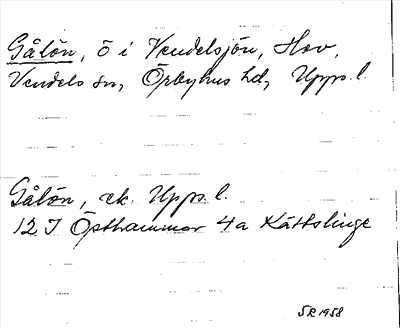 Gålön, ö i Vendelsjön, Hov,
Vendels sn, Örbyhus hd, Upps. l.
Gålön, ek. Upps. l.
12 I Östhammar 4a Kättslinge
SR 1958